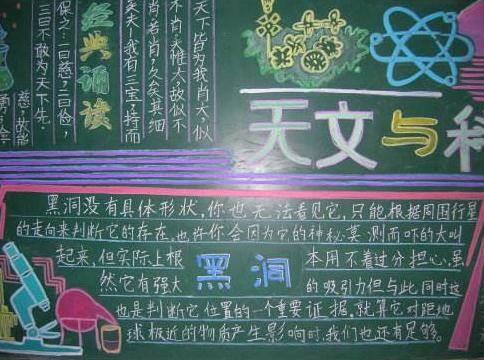 经典诵读
天下皆为我肖大,似
不肖夫惟大,故似不
肖,若肖,久矣其细
矣夫!我有三宝,持而
保之:一曰慈,二曰俭,
三曰不敢为天下先.
慈,故能
天文与科
黑洞没有具体形状,你也无法看见它,只能根据周围行星
的走向来判断它的存在.也许你会因为它的神秘莫测而吓的大叫
起来,但实际上根本用不着过分担心,虽
黑洞
然它有强大的吸引力但与此同时这
也是判断它位置的一个重要证据,就算它对距地
球极近的物质产生影响时,我们也还有足够。